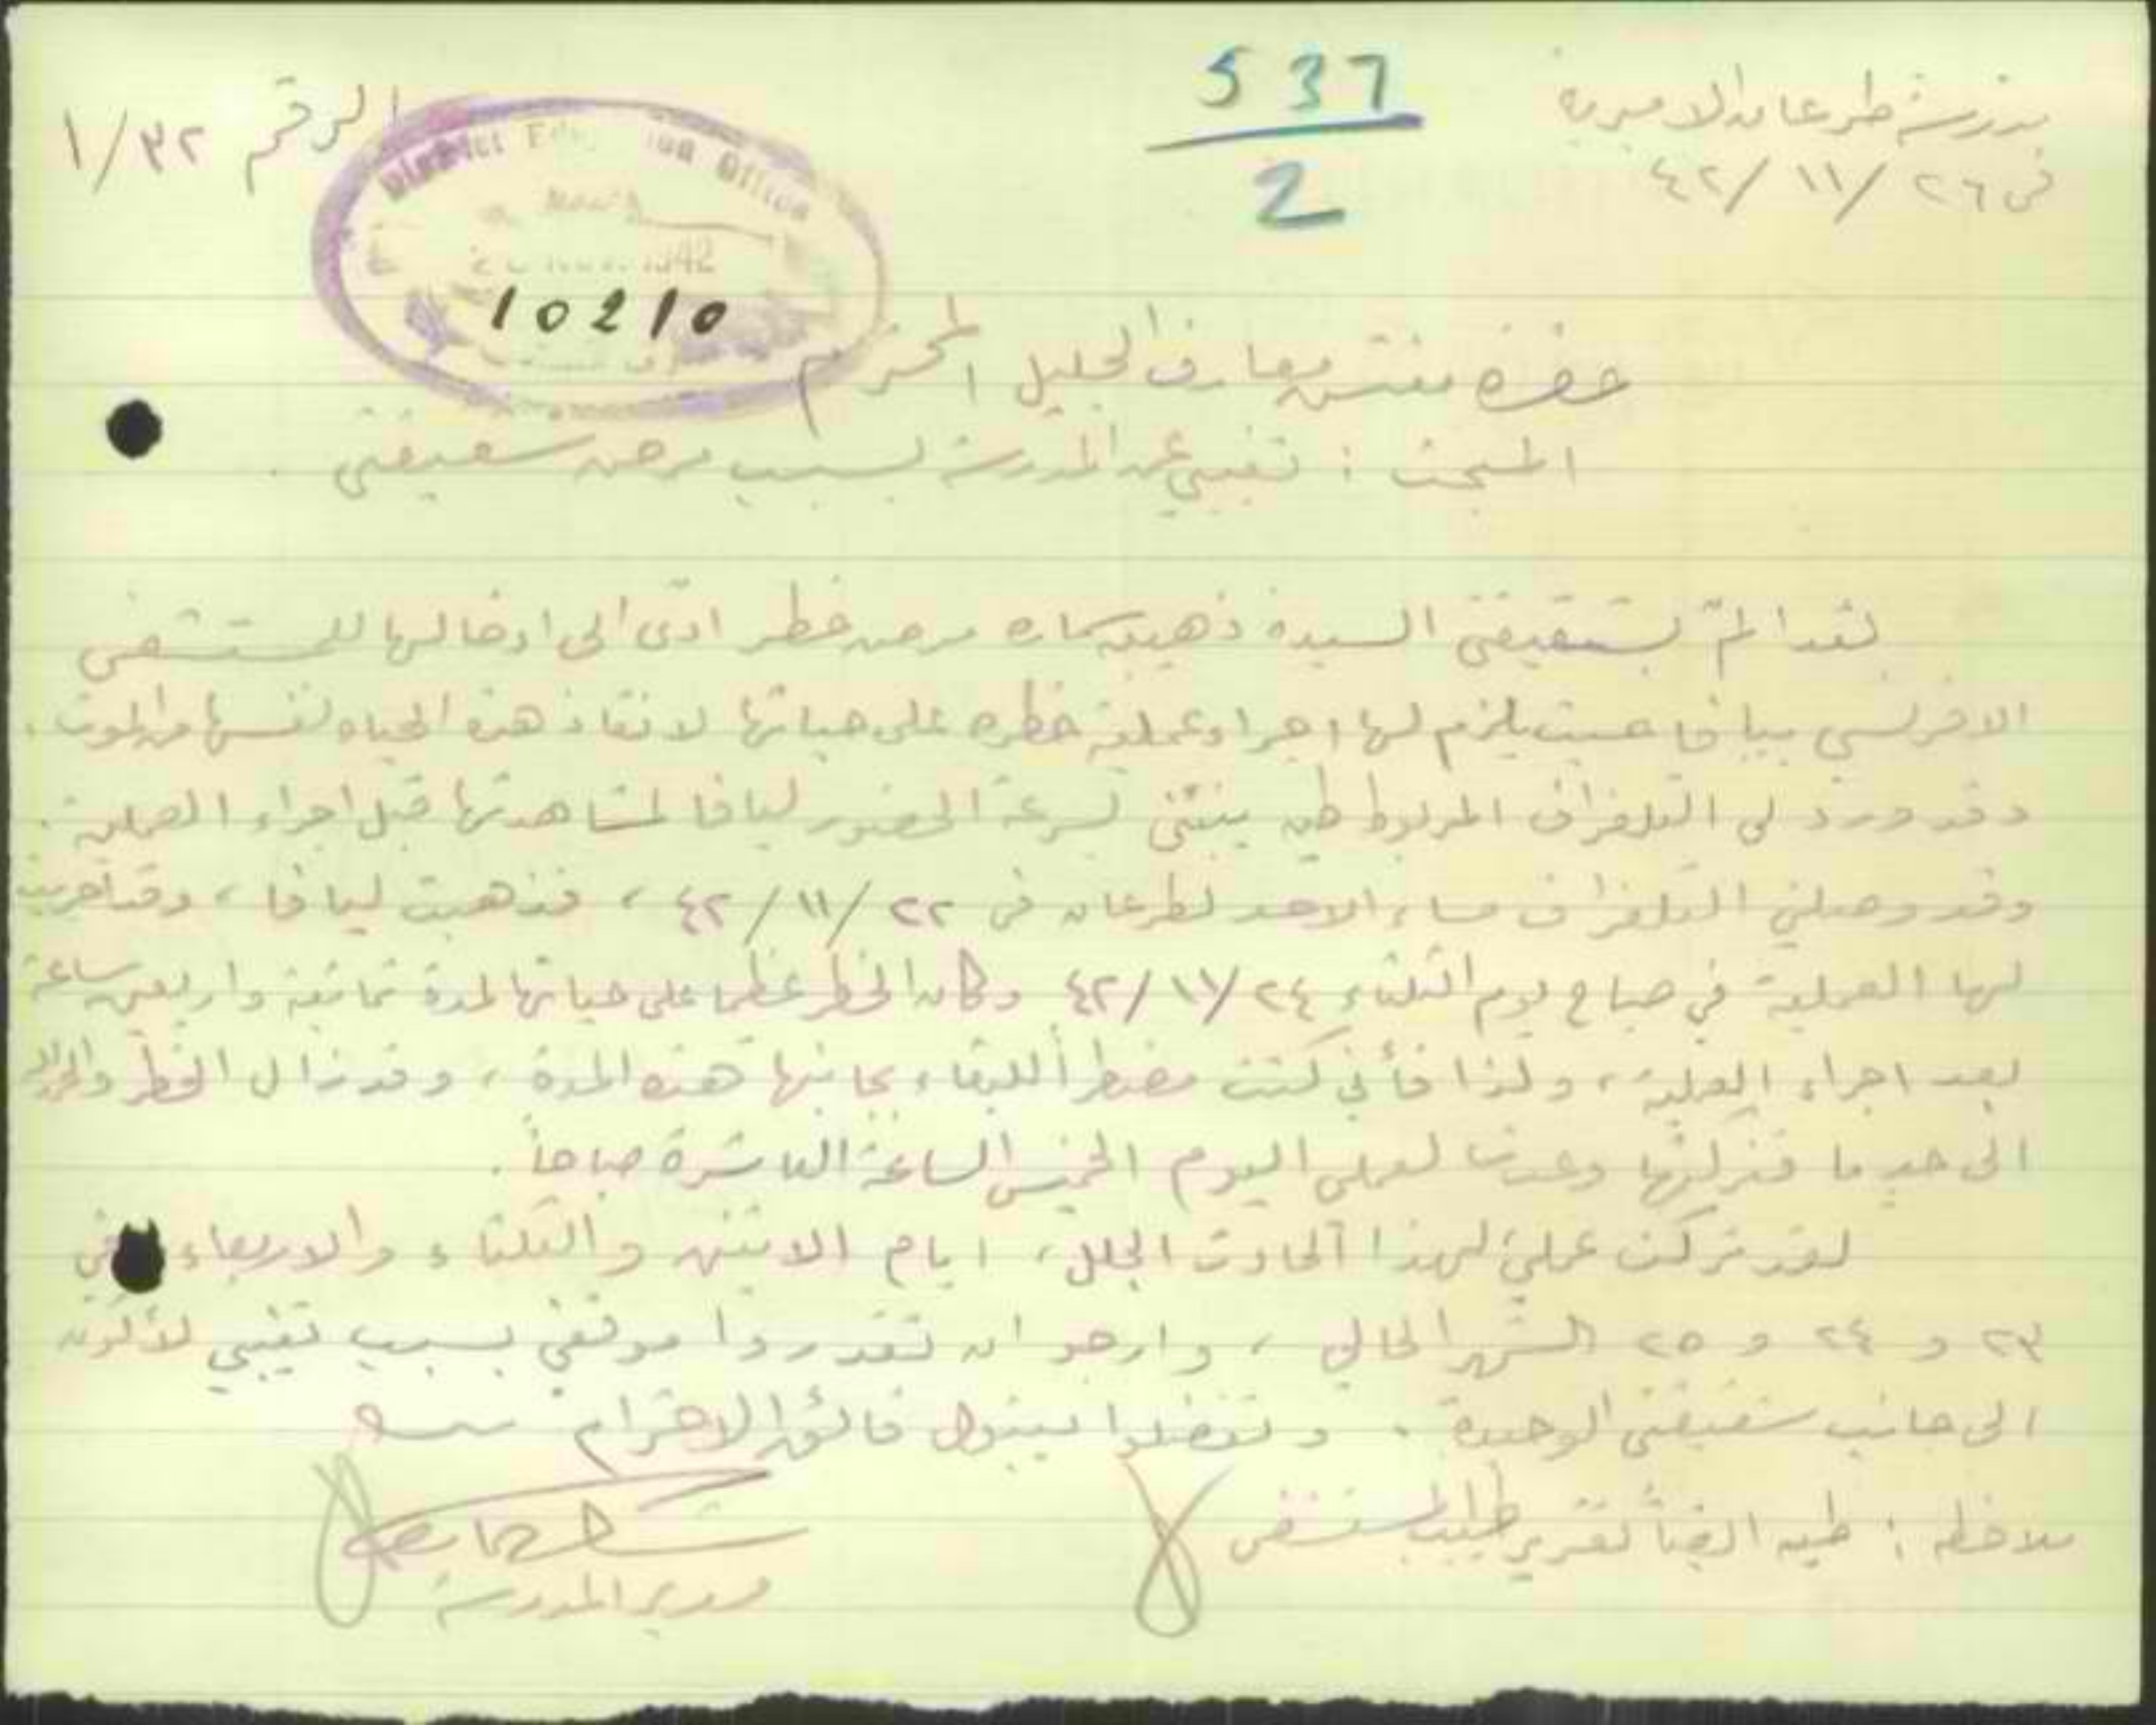 مدرسة طرعان الاميرية
في ٢٦/ ١١/ ٤٢
537
2
الرقم ٣٢/ ١
District Education Office
10210
حضرة مفتش معارف الجليل المحترم
المبحث : تغيبي عن المدرسة بسبب مرض شقيقتي .
لقد ألمّ بشقيقتي السيدة ذهيبه سماره مرض خطر ادّى الى ادخالها للمستشفى
الافرنسي بيافا حيث يلزم لها اجراء عملية خطره على حياتها لانقاذ هذه الحياه نفسها من الموت .
وقد ورد لي التلغراف المربوط طيه ينبئني بسرعة الحضور ليافا لمشاهدتها قبل اجراء العملية .
وقد وصلني التلغراف مساء الاحد لطرعان في ٢٢/ ١١/ ٤٢ ، فذهبت ليافا ، وقد اجريت
لها العملية في صباح يوم الثلثاء ٢٤/ ١١/ ٤٢ وكان الخطر عظيما على حياتها لمدة ثمانية واربعين ساعة
بعد اجراء العملية ، ولذا فأني كنت مضطراً للبقاء بجانبها هذه المدة ، وقد زال الخطر والحمد لله
الى حد ما فتركتها وعدت لعملي اليوم الخميس الساعة العاشرة صباحاً .
لقد تركت عملي لهذا الحادث الجلل ، ايام الاثنين والثلثاء والاربعاء في
٢٣ و ٢٤ و ٢٥ الشهر الحالي ، وارجو ان تقدروا موقفي بسبب تغيبي لأكون
الى جانب شقيقتي الوحيدة . وتفضلوا بقبول فائق الاحترام
مدير المدرسة
ملاحظه : طيه ايضاً تقرير طبيب المستشفى